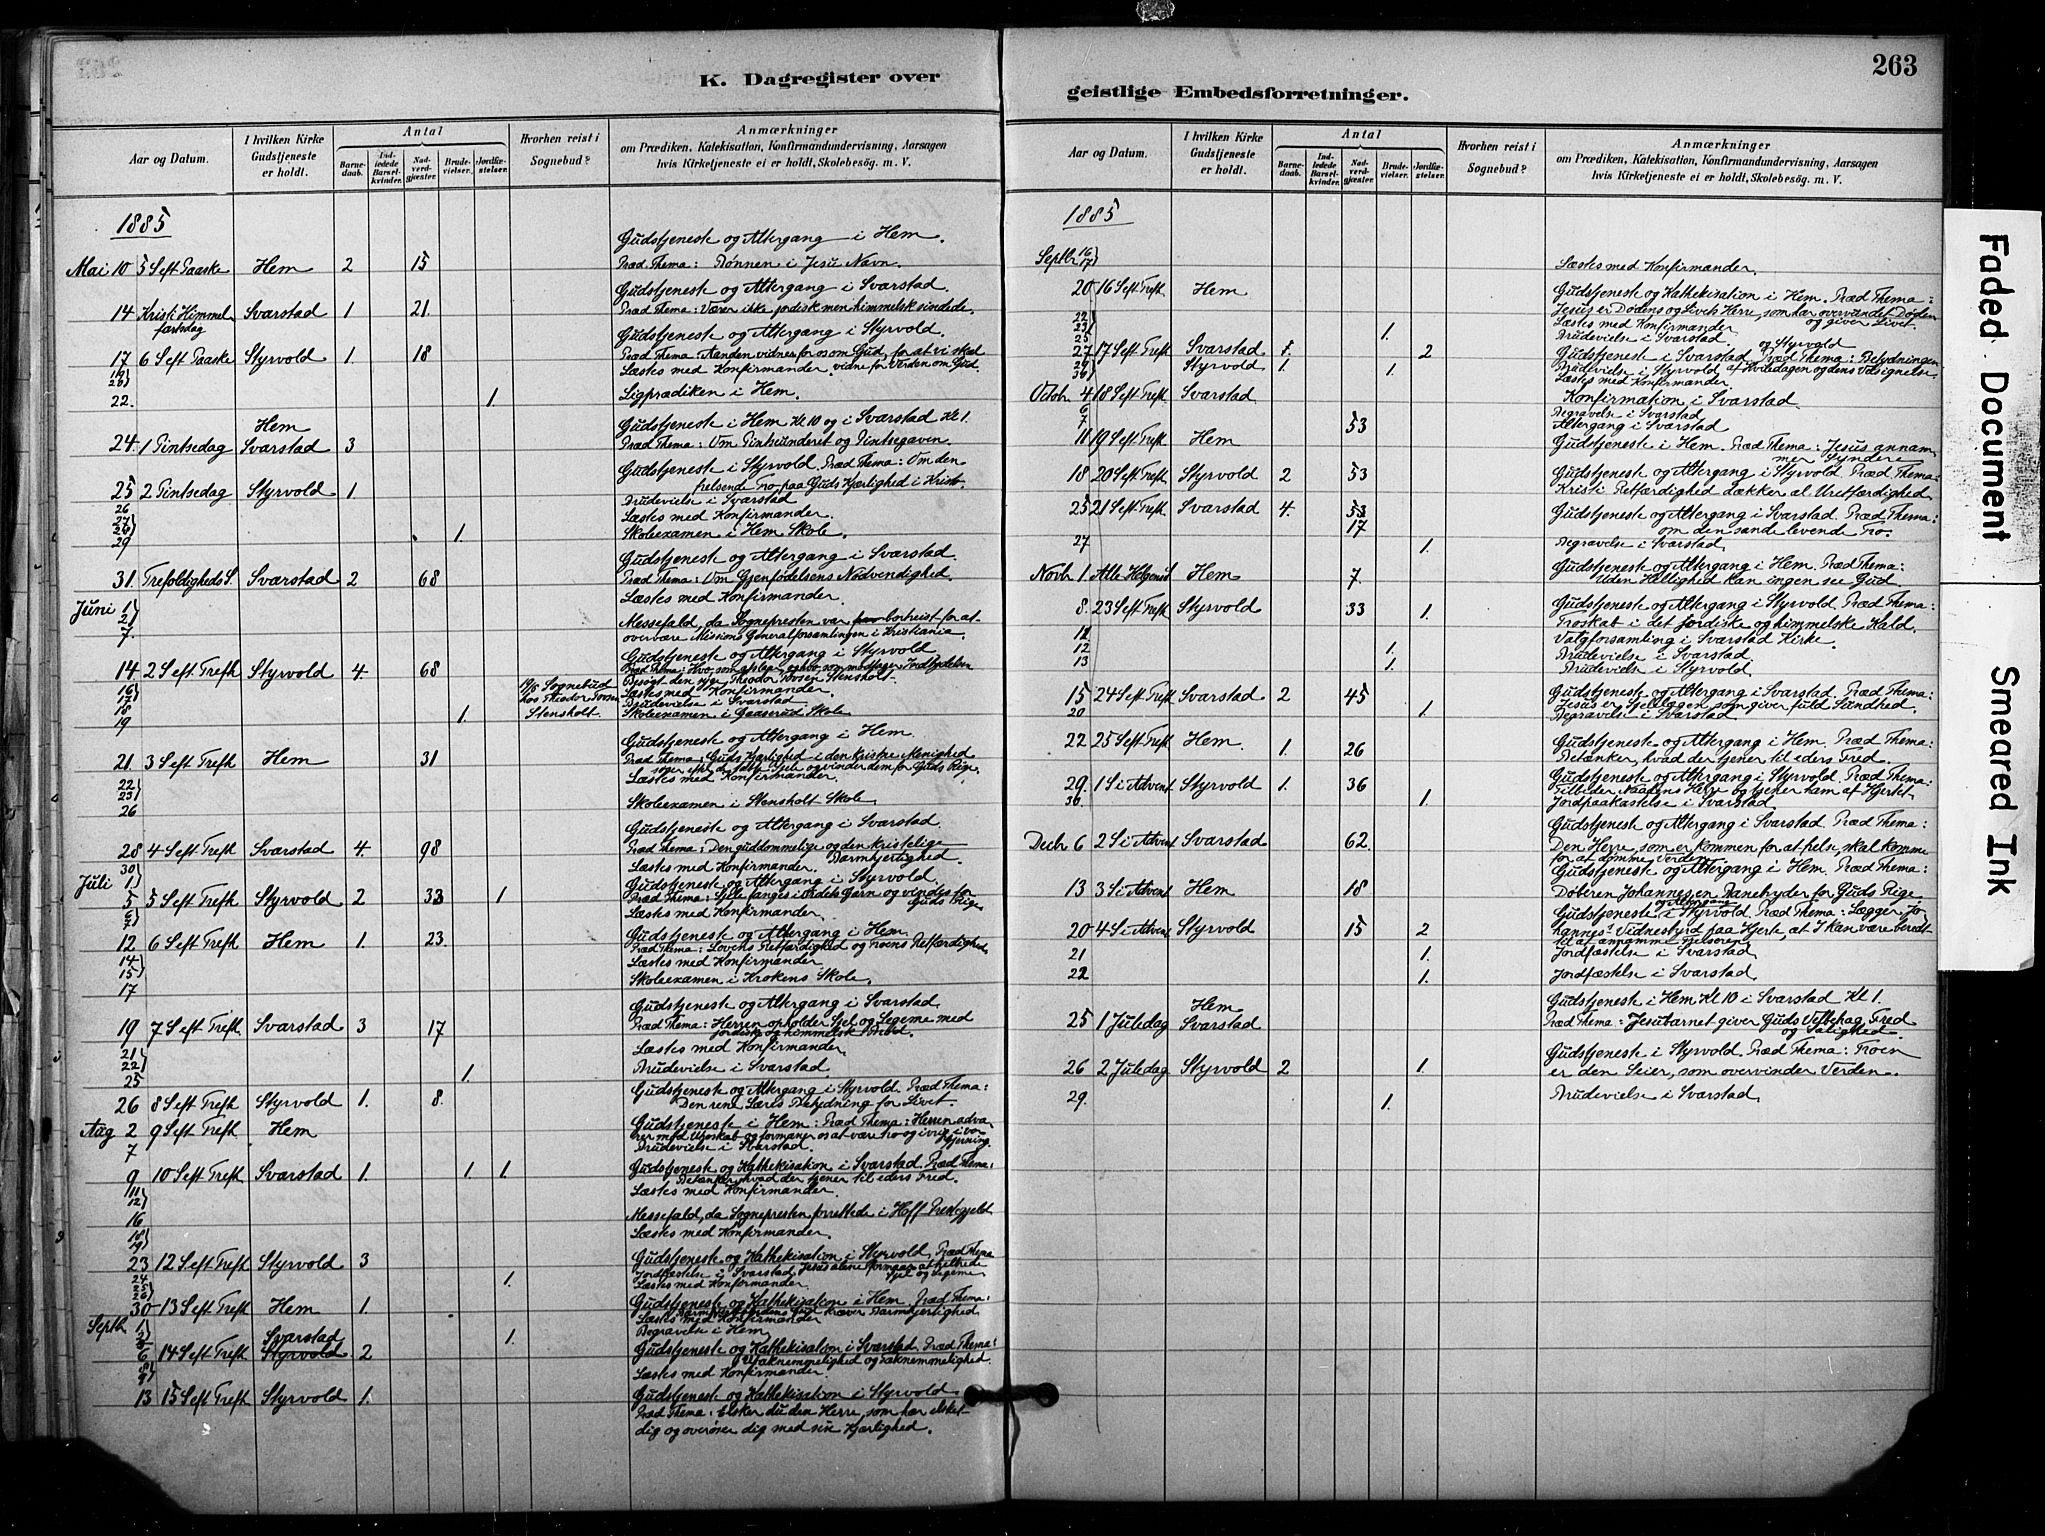 K. Dagregister over
Aar og Datum. I hvilken Kirke Gudstjeneste er holdt. Antal Barnedaab. Indledede Barselkvinder. Nadverdgjæster. Brudevielser. Jordfæstelser. Hvorhen reist i Sognebud? Anmærkninger om Prædiken, Katekisation, Konfirmandundervisning, Aarsagen hvis Kirketjeneste ei er holdt, Skolebesög. m. V.
1885
Gudstjeneste og Altergang i Hem.
Mai 10 5 S eft Paaske Hem 2 15 Præd. Thema: Bønnen i Jesu Navn.
Gudstjeneste og Altergang i Svarstad.
14 Kristi Himmelfartsdag Svarstad 1 21 Præd Thema: Værer ikke jordisk men himmelsk sindede.
Gudstjeneste og Altergang i Styrvold.
17 6 S eft Paaske Styrvold 1. 18 Præd Thema Aanden vidner for os om Gud, for at vi skal vidne for Verden om Gud.
19 20 Læstes med Konfirmander.
22. 1. Ligprædiken i Hem.
Gudstjeneste i Hem Kl 10 og i Svarstad Kl 1.
24. 1 Pintsedag Hem Svarstad 3 Præd Thema: Om Pintseunderet og Pintsegaven.
Gudstjeneste i Styrvold. Præd Thema: Om den
25 2 Pintsedag Styrvold 1 frelsende Tro paa Guds Kjærlighed i Kristo.
26 Brudevielse i Svarstad
27 28 Læstes med Konfirmander.
29 1. Skoleexamen i Hem Skole.
Gudstjeneste og Altergang i Svarstad.
31. Trefoldigheds S. Svarstad 2 68 Præd Thema: Om Gjenfødelsens Nødvendighed.
Juni 1 2 Læstes med Konfirmander.
7 Messefald, da Sognepresten var bortreist for at
overvære Missions Generalforsamlingen i Kristiania
Gudstjeneste og Altergang i Styrvold
14 2 S eft Trefh Styrvold 4 68
19/6 Sognebud hos Theodor Stensholt. Besøgt den syge Theodor Stensholt.
16 17 Læstes med Konfirmander.
18 Brudevielse i Svarstad
19 1. Skoleexamen i Gaaserud Skole
Gudstjeneste og Altergang i Hem
21 3 S eft Trefh Hem 31 Præd Thema: Guds Kjærlighed i den kristne Menighed
22 23 Læstes med Konfirmander.
26 Skoleexamen i Stensholt Skole
Gudstjeneste og Altergang i Svarstad.
28 4 S eft Trefh Svarstad 4. 98 Præd Thema: Den guddommelige og den kristelige Barmhjertighed.
30 Juli 1 Læstes med Konfirmander
Gudstjeneste og Altergang i Styrvold.
5 5 S eft Trefh Styrvold 2 33 1 Præd Thema: Sjele fanges i Ordets Garn og vindes for Guds Rige
6 7 Læstes med Konfirmander.
12 6 S eft Trefh Hem 1. 23 Gudstjeneste og Altergang i Hem.
Præd Thema: Lovens Retfærdighed og Troens Retfærdighed
14 15 Læstes med Konfirmander
17 Skoleexamen i Krokens Skole.
Gudstjeneste og Altergang i Svarstad
19 7 S eft Trefh Svarstad 3 17 Præd Thema: Herren opholder Sjel og Legeme med
jordisk og himmelsk Brød.
21 22 Læstes med Konfirmander
25 1. Brudevielse i Svarstad
26 8 S eft Trefh Styrvold 1. 8. Gudstjeneste og Altergang i Styrvold. Præd Thema:
Den rene Læres Betydning for Livet.
Aug 2 9 S eft Trefh Hem Gudstjeneste i Hem: Præd Thema: Herren adva
rer mod Utroskab og formaner os at være tro og ivrig i vor Gjerning.
7 Brudevielse i Svarstad.
9 10 S eft Trefh Svarstad 1. 1 1. Gudstjeneste og Kathekisation i Svarstad. Præd Thema:
Betænker, hvad der tjener til eders Fred.
11 12 Læstes med Konfirmander.
16 Messefald, da Sognepresten forrettede i Hoff Prestegjeld
18 19 Læstes med Konfirmander.
23 12 S eft Trefh Styrvold 3 Gudstjeneste og Kathekisation i Styrvold. Præd Thema
24 1. Jordfæstelse i Svarstad
25 26 Læstes med Konfirmander
30 13 S eft Trefh Hem 1. Gudstjeneste og Kathekisation i Hem Præd Thema:
Septb 1 2 Læstes med Konfirmander
1. Begravelse i Hem
6 14 S eft Trefh Svarstad Styrvold 2 Gudstjeneste og Kathekisation i Svarstad. Præd Thema:
Utaknemmelighed og Taknemmelighed.
8 9 Læstes med Konfirmander.
13 15 S eft Trefh Styrvold 1. Gudstjeneste og Kathekisation i Styrvold.
Præd Thema: Elsker du den Herre, som har elsket
dig og overøser dig med sin Kjærlighed.
263
geistlige Embedsforretninger.
Aar og Datum. I hvilken Kirke Gudstjeneste er holdt. Antal Barnedaab. Indledede Barselkvinder. Nadverdgjæster. Brudevielser. Jordfæstelser. Hvorhen reist i Sognebud? Anmærkninger om Prædiken, Katekisation, Konfirmandundervisning, Aarsagen hvis Kirketjeneste ei er holdt, Skolebesög. m. V.
1885
Septbr 16 17 Læstes med Konfirmander.
20 16 S eft Trefh Hem Gudstjeneste og Kathekisation i Hem. Præd Thema:
Jesus er Dødens og Livets Herre, som har overvundet Døden og giver Livet.
22 23 Læstes med Konfirmander
25 1. Brudevielse i Svarstad
27 17 S eft Trefh Svarstad 1. 2 Gudstjeneste i Svarstad og Styrvold Præd Thema: Betydningen
af Hviledagen og dens Velsignelse.
29 Styrvold 1. 1. Brudevielse i Styrvold
30 Læstes med Konfirmander.
Octobr 4 18 S eft Trefh Svarstad Konfirmation i Svarstad.
6 Begravelse i Svarstad
7 53 Altergang i Svarstad
11 19 S eft Trefh Hem Gudstjeneste i Hem. Præd Thema: Jesus annam
mer Syndere
18 20 S eft Trefh Styrvold 2 53 Gudstjeneste og Altergang i Styrvold. Præd Thema:
Kristi Retfærdighed dækker al Uretfærdighed.
25 21 S eft Trefh Svarstad 4. 17 Gudstjeneste og Altergang i Svarstad. Præd Thema:
om den sande levende Tro.
27 1. Begravelse i Svarstad
Novbr 1 Alle Helgensd Hem 7 Gudstjeneste og Altergang i Hem. Præd Thema:
Uden Hellighed kan ingen see Gud
8. 23 S eft Trefh Styrvold 33 1. Gudstjeneste og Altergang i Styrvold. Præd Thema:
Troskab i det jordiske og himmelske Kald.
11 Valgforsamling i Svarstad Kirke.
12 1. Brudevielse i Svarstad
13 1. Brudevielse i Styrvold
15 24 S eft Trefh Svarstad 2 45 Gudstjeneste og Altergang i Svarstad. Præd Thema:
Jesus er Sjelelægen som giver fuld Sundhed.
20 1. Begravelse i Svarstad
22 25 S eft Trefh Hem 1. 26 Gudstjeneste og Altergang i Hem. Præd Thema:
Betænker, hvad der tjener til eders Fred.
29. 1 S i Advent Styrvold 1. 36 Gudstjeneste og Altergang i Styrvold. Præd Thema:
Tilbeder Naadens Herre og tjener ham af Hjertet.
30 1. Jordpaakastelse i Svarstad
Gudstjeneste og Altergang i Svarstad. Præd Thema:
Decbr 6 2 S i Advent Svarstad 62. Den Herre, som er kommen for at frelse, skal komme
for at dømme Verden
Gudstjeneste og Altergang i Hem. Præd Thema:
13 3 S i Advent Hem 18 Døberen Johannes en Banebryder for Guds Rige.
Gudstjeneste og Altergang i Styrvold. Præd Thema: Lægger Jo
20 4 S i Advent Styrvold 15 2 hannes Vidnesbyrd paa Hjerte, at I kan være beredt
til at annamme Frelseren
21 1. Jordfæstelse i Svarstad
22 1. Jordfæstelse i Svarstad
Gudstjeneste i Hem Kl 10 i Svarstad Kl 1.
25 1 Juledag Hem Svarstad Præd Thema: Jesubarnet giver Guds Velbehag, Fred og Salighed
Gudstjeneste i Styrvold. Præd Thema: Troen
26 2 Juledag Styrvold 2 1. er den Seier, som overvinder Verden.
29. 1. Brudevielse i Svarstad.
Faded Document
Smeared Ink